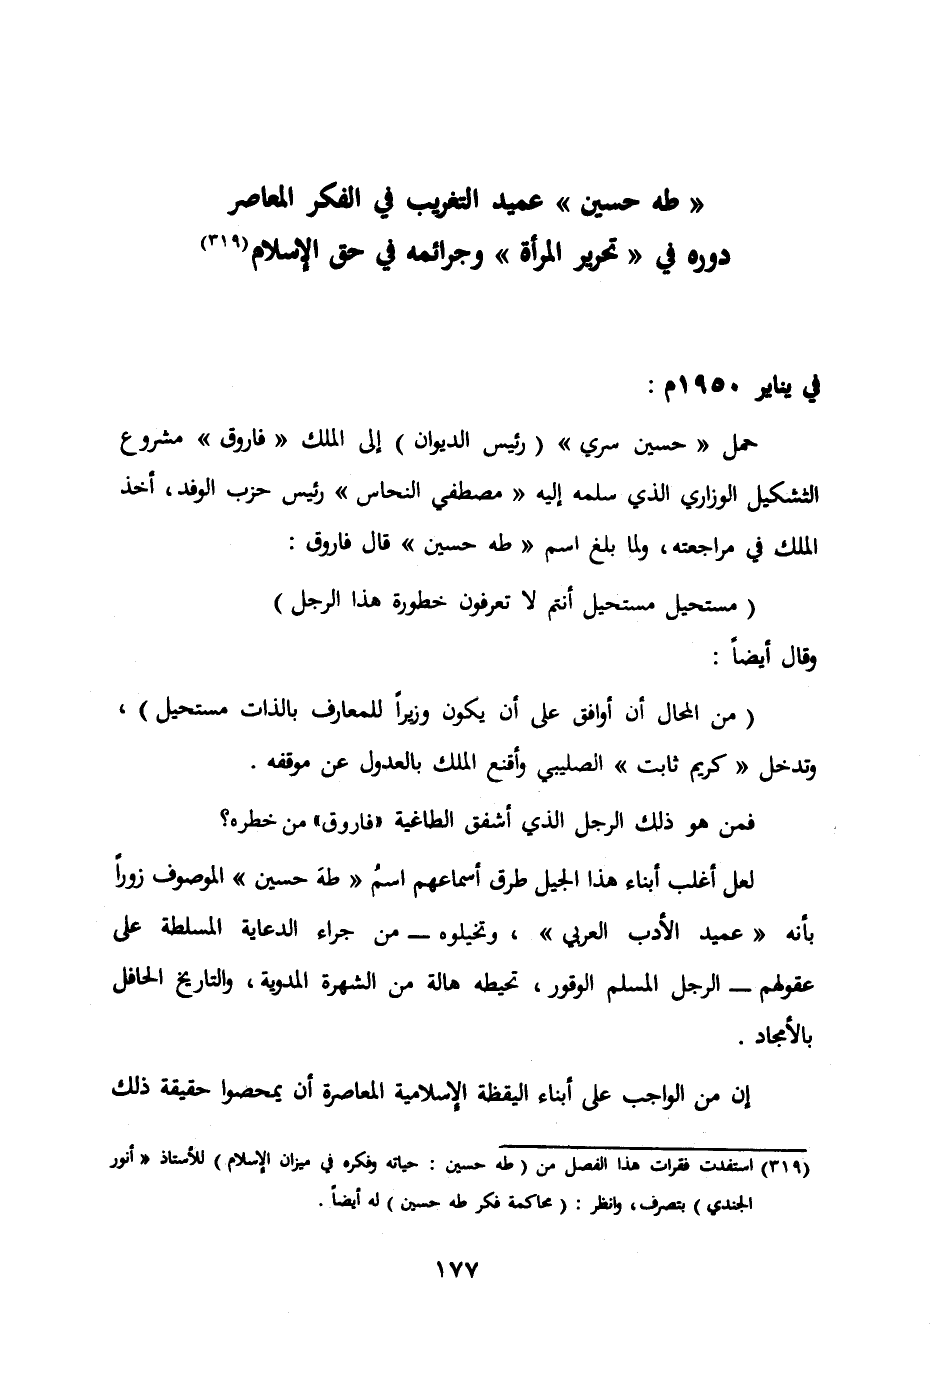 « طه حسين » عميد التغريب في الفكر المعاصر
دوره في « تحرير المرأة » وجرائمه في حق الإسلام(٣١٩)
في يناير ١٩٥٠م :
حمل « حسين سري » ( رئيس الديوان ) إلى الملك « فاروق » مشروع
التشكيل الوزاري الذي سلمه إليه « مصطفي النحاس » رئيس حزب الوفد، أخذ
الملك في مراجعته، ولما بلغ اسم « طه حسين » قال فاروق :
( مستحيل مستحيل أنتم لا تعرفون خطورة هذا الرجل )
وقال أيضاً :
( من المحال أن أوافق على أن يكون وزيراً للمعارف بالذات مستحيل ) ،
وتدخل « كريم ثابت » الصليبي وأقنع الملك بالعدول عن موقفه .
فمن هو ذلك الرجل الذي أشفق الطاغية «فاروق» من خطره؟
لعل أغلب أبناء هذا الجيل طرق أسماعهم اسمُ « طهَ حسين » الموصوف زوراً
بأنه « عميد الأدب العربي » ، وتخيلوه ــ من جراء الدعاية المسلطة على
عقولهم ــ الرجل المسلم الوقور ، تحيطه هالة من الشهرة المدوية ، والتاريخ الحافل
بالأمجاد .
إن من الواجب على أبناء اليقظة الإسلامية المعاصرة أن يمحصوا حقيقة ذلك
(٣١٩) استفدت فقرات هذا الفصل من ( طه حسين : حياته وفكره في ميزان الإسلام ) للأستاذ « أنور
الجندي ) بتصرف، وانظر : ( محاكمة فكر طه حسين ) له أيضاً .
١٧٧